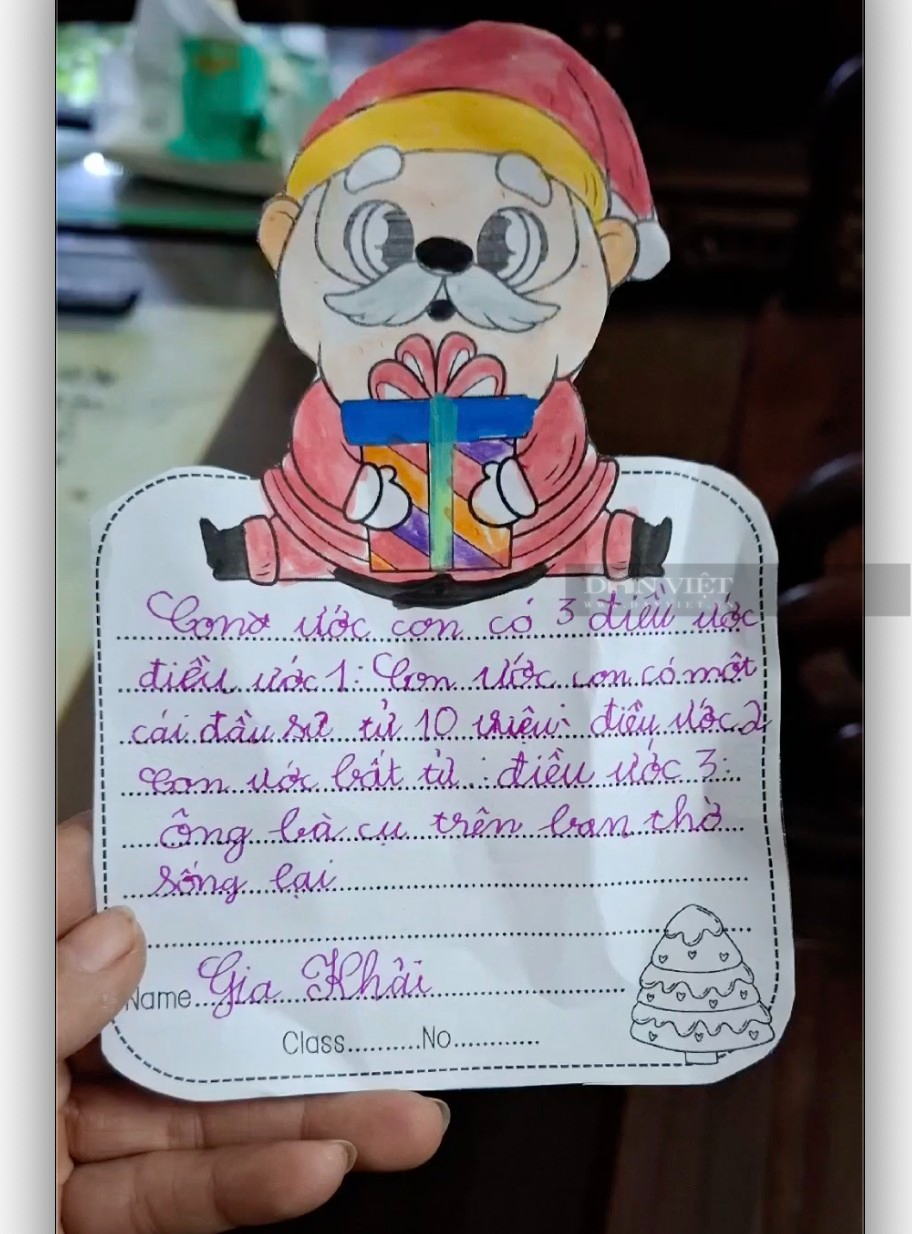 DÂN VIỆT
WWW.DANVIET.VN
Conơ ước con có 3 điều ước
điều ước 1: Con ước con có một
cái đầu sư tử 10 triệu điều ước 2
Con ước bất tử : điều ước 3:
Ông bà cụ trên ban thờ
sống lại
Name Gia Khải
Class..........No............